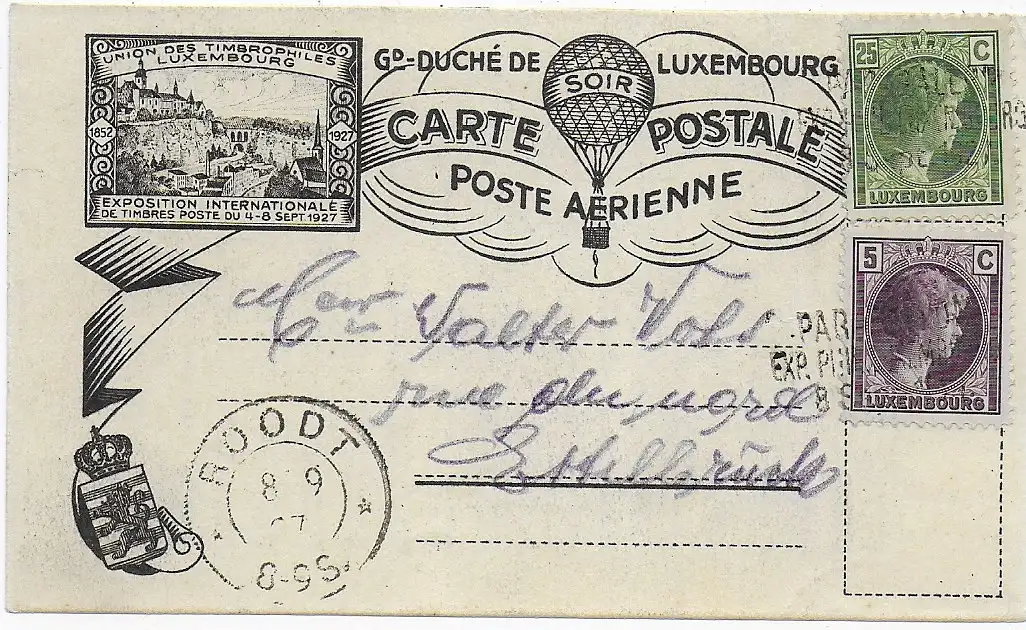 UNION DES TIMBROPHILES
LUXEMBOURG
1852 1927
EXPOSITION INTERNATIONALE
DE TIMBRES POSTE DU 4-8 SEPT. 1927
GD-DUCHÉ DE LUXEMBOURG
SOIR
CARTE POSTALE
POSTE AÉRIENNE
25 C
LUXEMBOURG
5 C
LUXEMBOURG
PAR
EXP.
Walter
rue du nord
Ettelbrück
ROODT
8 9
8-9S